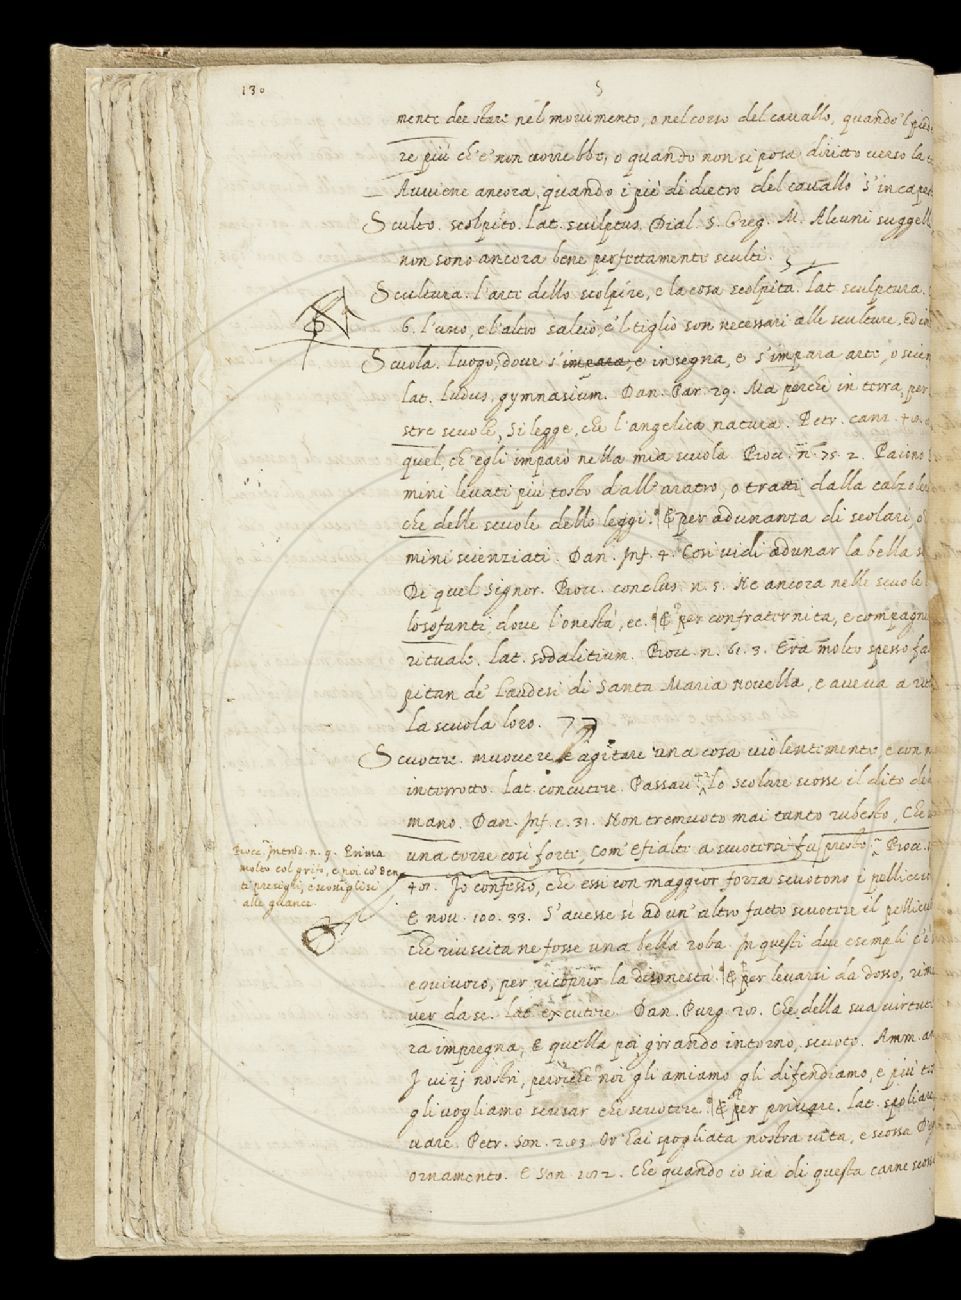 130
S
mente dee stare nel movimento, o nel corso del cavallo, quando 'l pied
re più ch'e' non dovrebbe, o quando non si posa diritto verso la
Avviene ancora, quando i piè di dietro del cavallo s'incaper
Sculto. scolpito. Lat. sculptus. Dial. S. Greg. M. Alcuni suggell
non sono ancora bene perfettamente sculti.
Scultura. l'arte dello scolpire, e la cosa scolpita. Lat. sculptura.
6. L'uno, e l'altro salcio, e 'l tiglio son necessari alle sculture, ed
Scuola. luogo, dove s'impara, e insegna, e s'impara arte, o scien
lat. ludus, gymnasium. Dan. Par. 29. Ma perchè in terra, per
stre scuole, Si legge, che l'angelica natura. Petr. canz.
quel, ch'egli imparò nella mia scuola. Bocc. n. 75. 2. Paiono
mini levati più tosto dall'aratro, o tratti dalla calzole
che delle scuole delle leggi. ¶ E per adunanza di scolari, o
mini scienziati. Dan. Inf. 4. Così vidi adunar la bella s
Di quel Signor. Bocc. conclus. n. 5. Ne ancora nelle scuole
losofanti, dove l'onestà, ec. ¶ E per confraternita, e compagni
rituale. Lat. sodalitium. Bocc. n. 61. 3. Era molto spesso fa
pitan de' Laudesi di Santa Maria Novella, e aveva a
la scuola loro.
Scuotere. muovere e agitare una cosa violentemente, e con
interrotto. Lat. concutere. Passav. Lo scolare scosse il dito de
mano. Dan. Inf. c. 31. Non tremuoto mai tanto rubesto, Che
una torre così forte, Com' Efialte a scuotersi fu presto. Bocc.
Bocc. Introd. n. 9. Prima
molto col grifo, e poi co' den
ti presigli, e scossiglisi
alle guance.
Io confesso, che essi con maggior forza scuotono i pellicci
E nov. 100. 33. S'avesse sì ad un' altro fatto scuotere il pellic
che riuscita ne fosse una bella roba. In questi due esempli c'è
equivoco, per ricoprir la disonestà. ¶ E per levarsi da dosso, rim
ver da se. Lat. excutere. Dan. Purg. 28. Che della sua virtut
ra impregna, E quella poi girando intorno, scuote. Amm. an
I vizj nostri, perocchè noi gli amiamo gli difendiamo, e più
gli vogliamo scusar che scuotere. ¶ E per privare. Lat. spoliare
vare. Petr. Son. 283. Or hai spogliata nostra vita, e scossa D'og
ornamento. E Son. 282. Che quando io sia di questa carne scosso